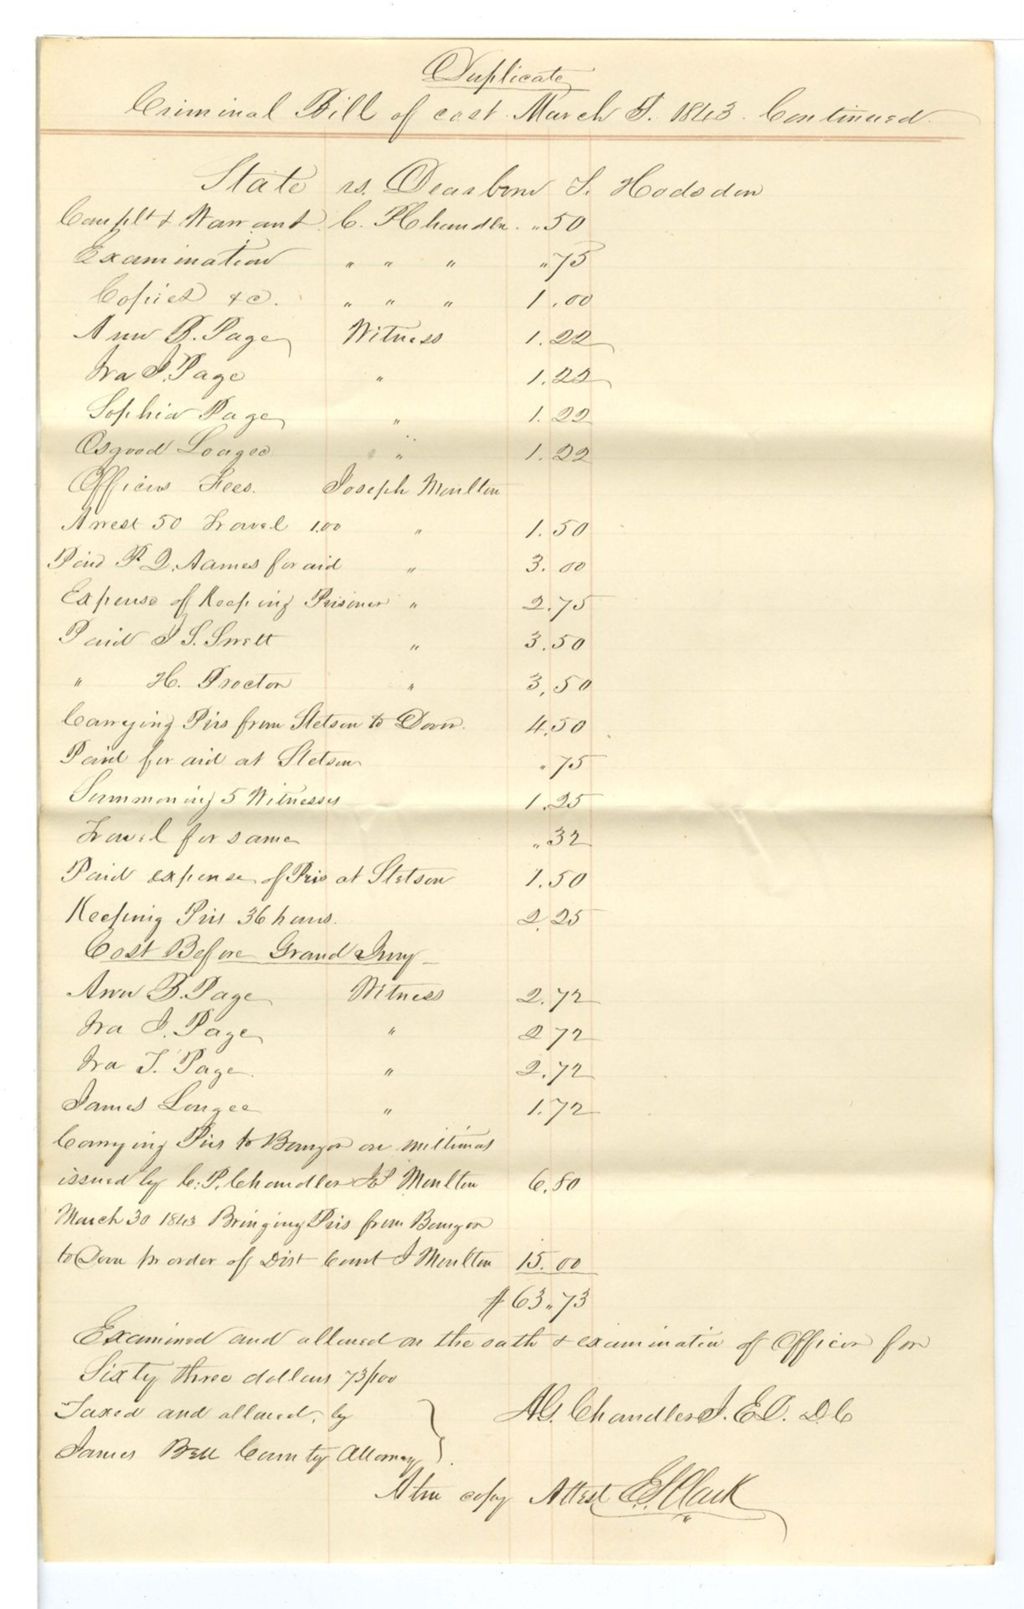 Duplicate
Criminal Bill of cost March T. 1843. Continued
State vs. Dearborn S. Hodsdon
Complt & Warrant C. P. Chandler. " 50
Examination " " " " 75
Copies &c. " " " 1.00
Ann B. Page Witness 1.22
Ira I. Page " 1.22
Sophia Page " 1.22
Osgood Lougee " 1.22
Officers Fees. Joseph Moulton
Arrest 50 Travel 1.00 " 1.50
Paid P. Q. Aames for aid " 3.00
Expense of Keeping Prisoner " 2.75
Paid J S. Swett " 3.50
" H. Proctor " 3.50
Carrying Pris from Stetson to Dover. 4.50
Paid for aid at Stetson .75
Summoning 5 Witnesses 1.25
Travel for same " 32
Paid expense of Pris at Stetson 1.50
Keeping Pris 36 hours. 2.25
Cost Before Grand Jury
Ann B. Page Witness 2.72
Ira I. Page " 2 72
Ira T. Page. " 2.72
James Lougee " 1.72
Carrying Pris to Bangor on mittimus
issued by C. P. Chandler Moulton 6.80
March 30 1843 Bringing Pris from Bangor
to Dover pr order of Dist Court J Moulton 15.00
$63.73
Examined and allowed on the oath & examination of Officer for
Sixty three dollars 73/100
Taxed and allowed, by } A G. Chandler J. E. D. D. C
James Bell County Attorney } .
A true copy Attest E S Clark